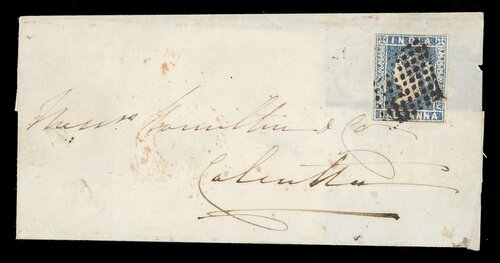 INDIA
HALF ANNA
Messrs Hamilton & Co
Calcutta